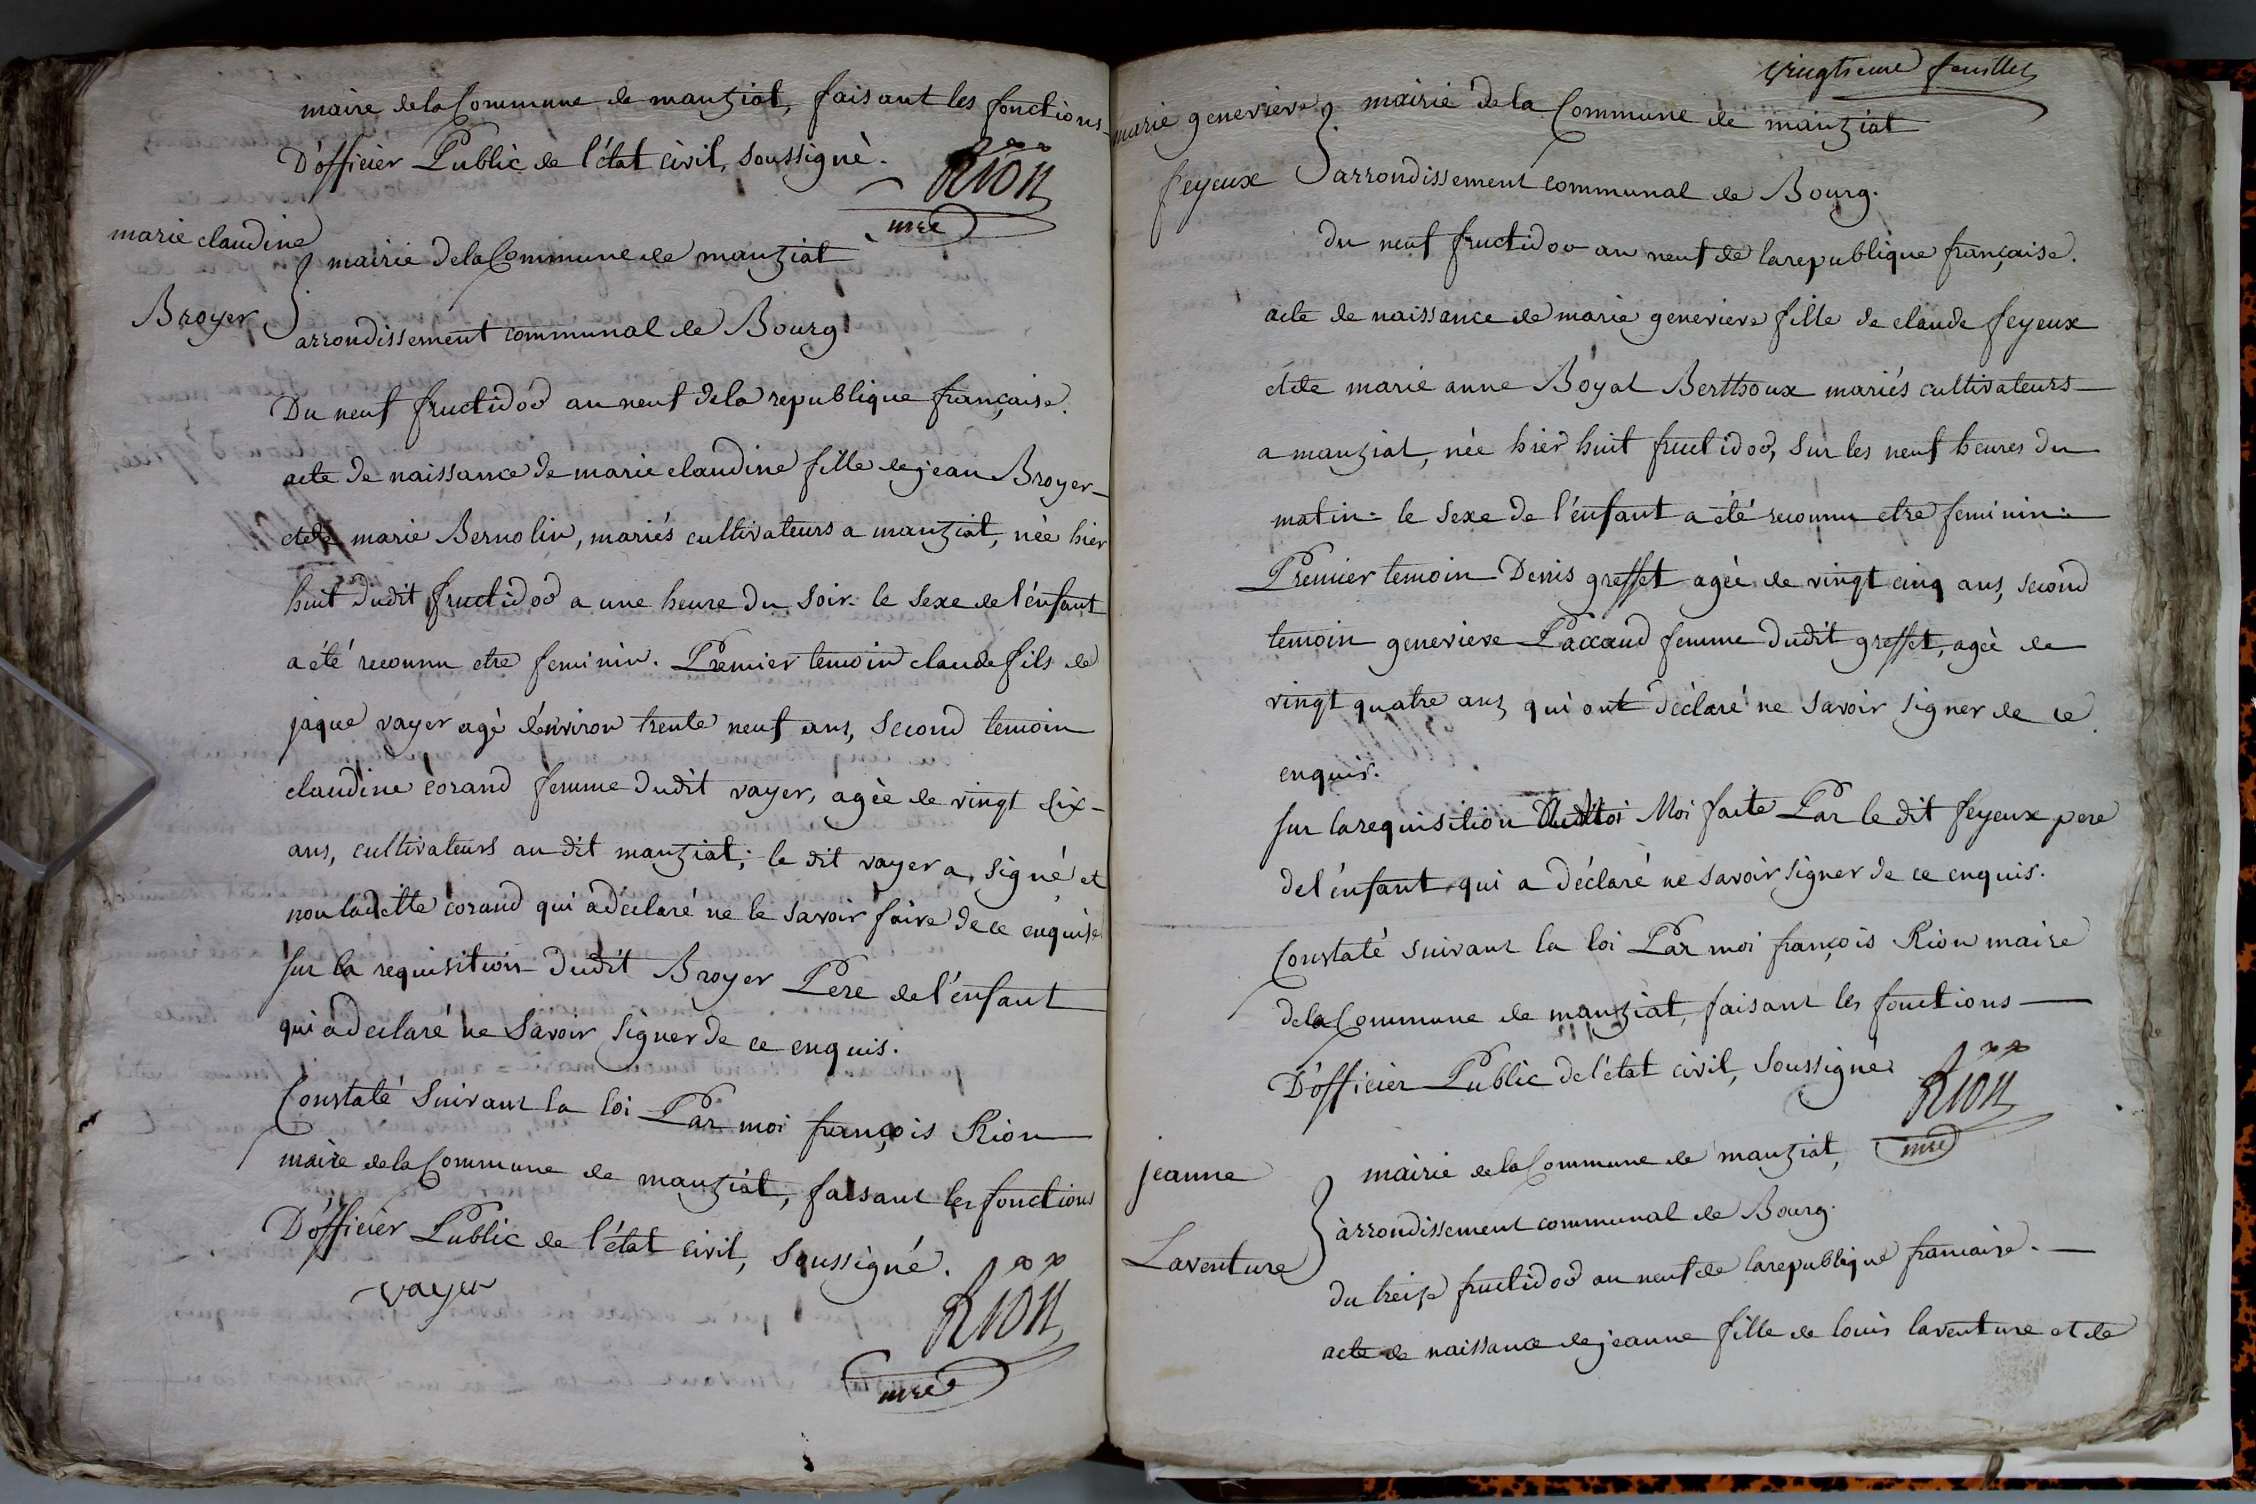 maire dela Commune de manziat, faisant les fonctions
D'officier Public de l'état civil, soussigné.
Rion
mre
marie claudine
Broyer
mairie dela Commune de manziat
arrondissement communal de Bourg
Du neuf fructidor an neuf dela republique française.
acte de naissance de marie claudine fille de jean Broyer
et de marie Bernolin, mariés cultivateurs a manziat, née hier
huit dudit fructidor a une heure du soir. le sexe de l'énfant
a été reconnu etre feminin. Premier temoin claude fils de
jaque vayer agé d'énviron trente neuf ans, second temoin
claudine corand femme dudit vayer, agée de vingt six
ans, cultivateurs au dit manziat; le dit vayer a signé et
non ladette corand qui a déclaré ne le savoir faire de ce enquise
sur la requisition dudit Broyer Pere de l'énfant
qui a declaré ne savoir signer de ce enquis.
Constaté suivant la loi Par moi françois Rion
maire dela Commune de manziat, faisant les fonctions
D'officier Public de l'état civil, soussigné.
vayer
Rion
mre
vingtieme feuillet
marie genevieve
feyeux
mairie dela Commune de manziat
arrondissement communal de Bourg.
du neuf fructidor an neuf de la republique française.
acte de naissance de marie genevieve fille de claude feyeux
et de marie anne Boyat Berthoux mariés cultivateurs
a manziat, née hier huit fructidor, sur les neuf heures du
matin. le sexe de l'énfant a été reconnu etre feminin.
Premier temoin Denis greffet agée de vingt cinq ans, second
temoin genevieve Paccaud femme dudit greffet, agée de
vingt quatre ans qui ont déclaré ne savoir signer de ce
enquis.
sur la requisition Moi faite Par le dit feyeux pere
de l'énfant qui a déclaré ne savoir signer de ce enquis.
Constaté suivant la loi Par moi françois Rion maire
dela Commune de manziat, faisant les fonctions
D'officier Public de l'état civil, soussigné.
Rion
mre
jeanne
Laventure
mairie dela Commune de manziat,
arrondissement communal de Bourg.
du treize fructidor an neuf de la republique francaise.
acte de naissance de jeanne fille de louis laventure et de